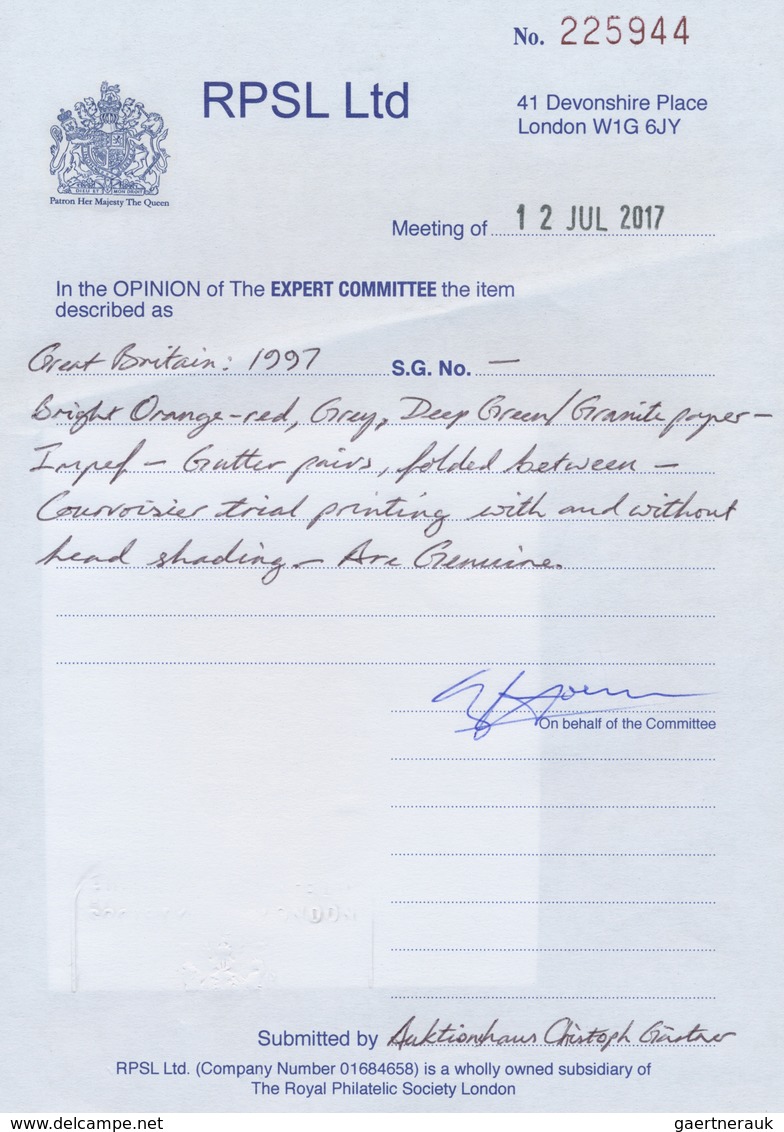 No. 225944
RPSL Ltd
41 Devonshire Place
London W1G 6JY
DIEU ET MON DROIT
Patron Her Majesty The Queen
Meeting of 12 JUL 2017
In the OPINION of The EXPERT COMMITTEE the item
described as
Great Britain: 1997 S.G. No. —
Bright Orange-red, Grey, Deep Green/Granite paper —
Imperf — Gutter pairs, folded between —
Courvoisier trial printing with and without
head shading — Are Genuine.
On behalf of the Committee
Submitted by Auktionshaus Christoph Gärtner
RPSL Ltd. (Company Number 01684658) is a wholly owned subsidiary of
The Royal Philatelic Society London
www.delcampe.net
gaertnerauk